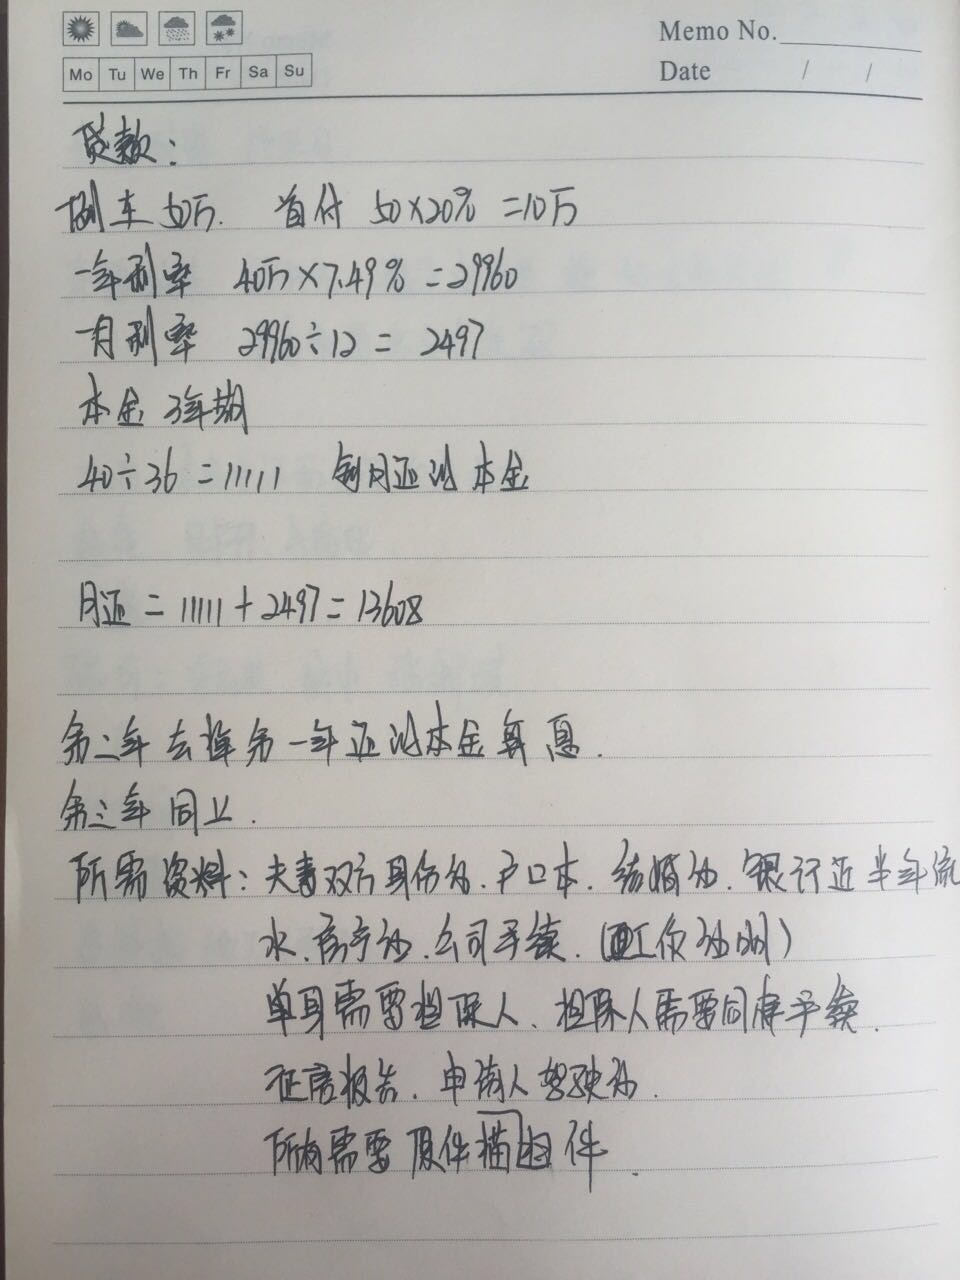 Memo No.
Mo Tu We Th Fr Sa Su
Date / /
贷款：
例车50万. 首付 50×20% =10万
一年利率 40万×7.49% =29960
一月利率 29960÷12 = 2497
本金 3年期
40÷36 =11111 每月还的本金
月还 = 11111+2497=13608
第二年去掉第一年还的本金算息.
第三年同上.
所需资料: 夫妻双方身份证、户口本、结婚证、银行近半年流
水、房产证、公司手续. (工作证明)
单身需要担保人、担保人需要同样手续.
征信报告、申请人驾驶证.
所有需要原件扫描件.